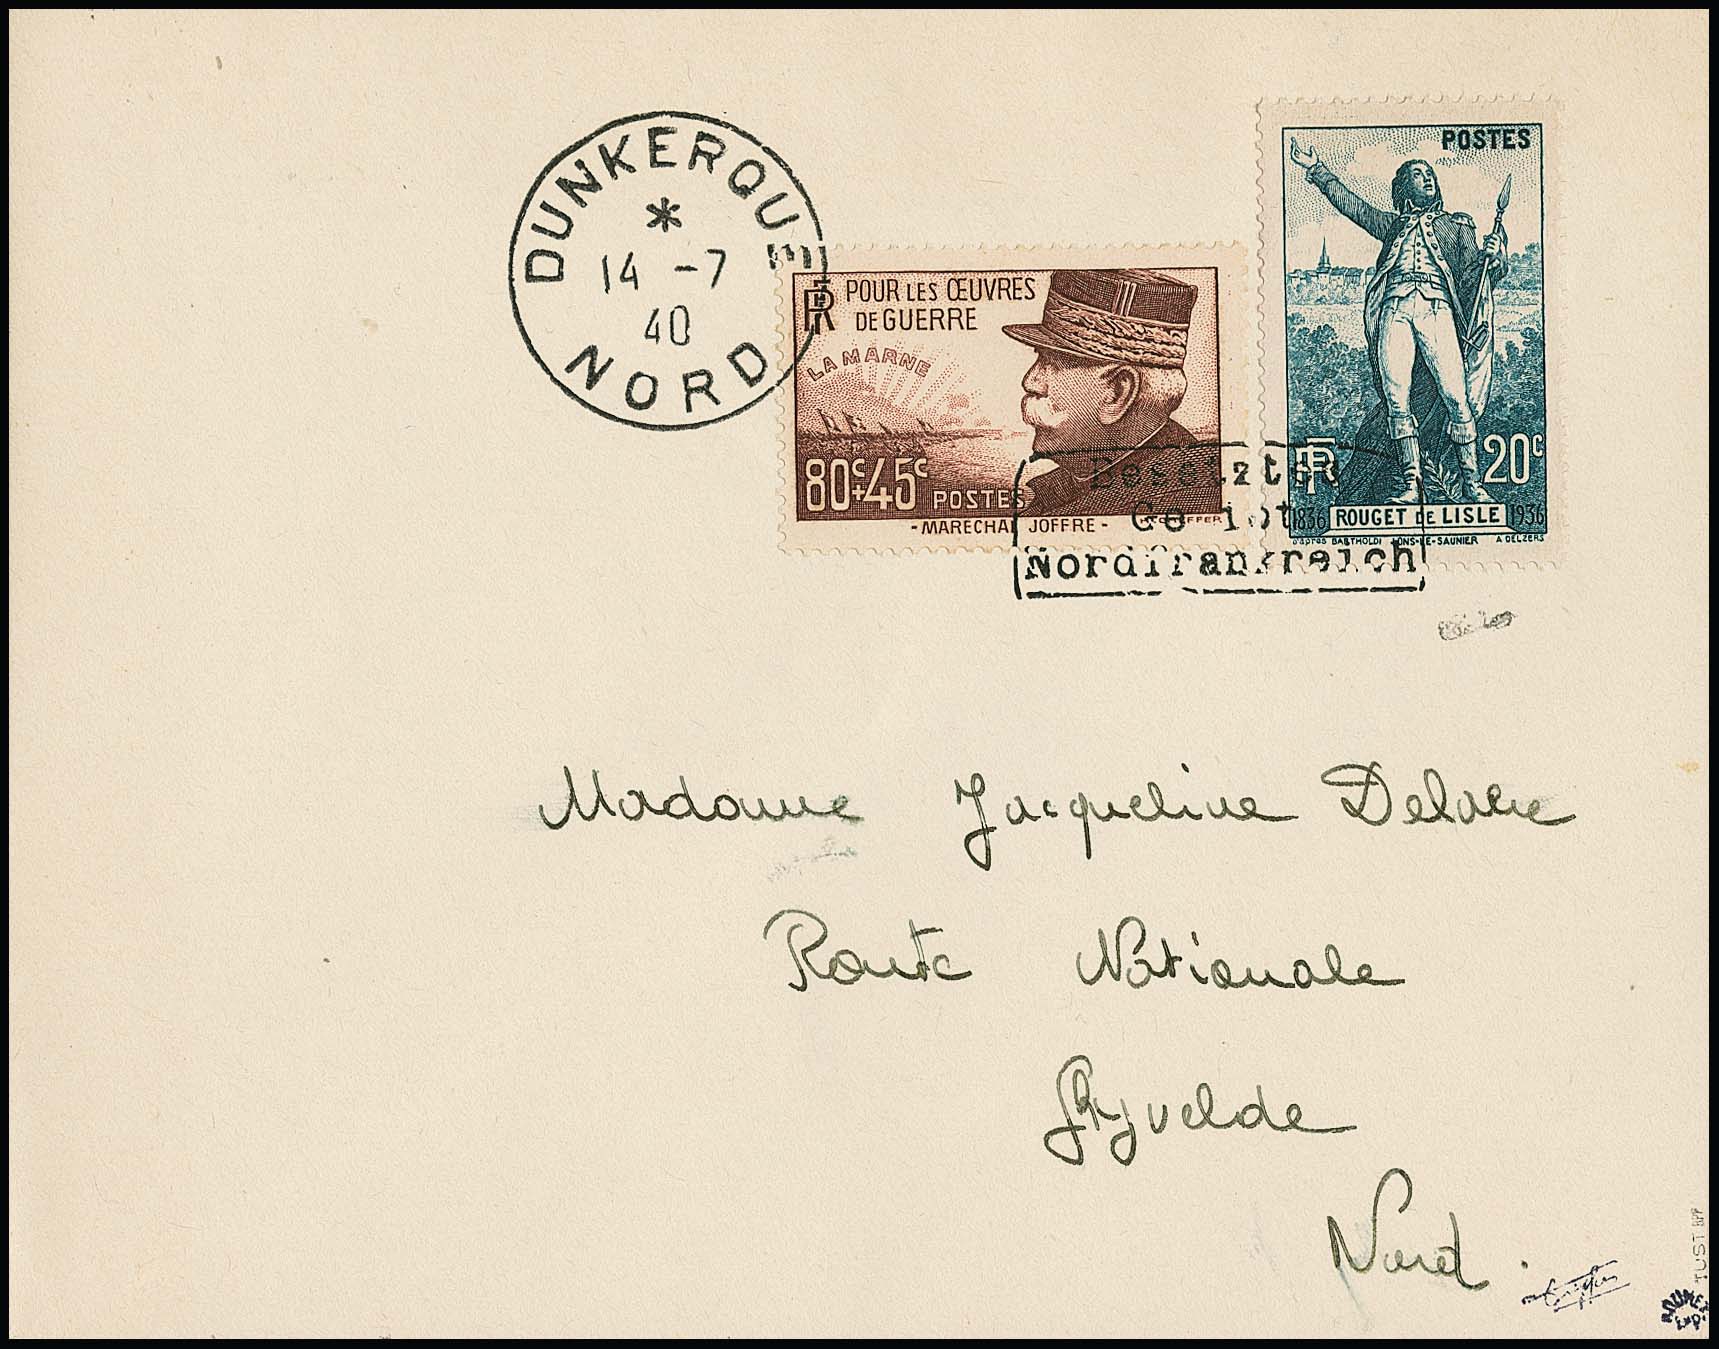 DUNKERQUE
14 -7
40
NORD
RF
POUR LES ŒUVRES
DE GUERRE
LA MARNE
80c+45c
POSTES
- MARÉCHAL JOFFRE -
POSTES
RF
20c
1836 ROUGET DE LISLE 1936
d'après BARTHOLDI LONS-LE-SAUNIER A DELZERS
Besetztes
Gebiet
Nordfrankreich
Madame Jacqueline Delaere
Route Nationale
Ghyvelde
Nord.
TUST BPP